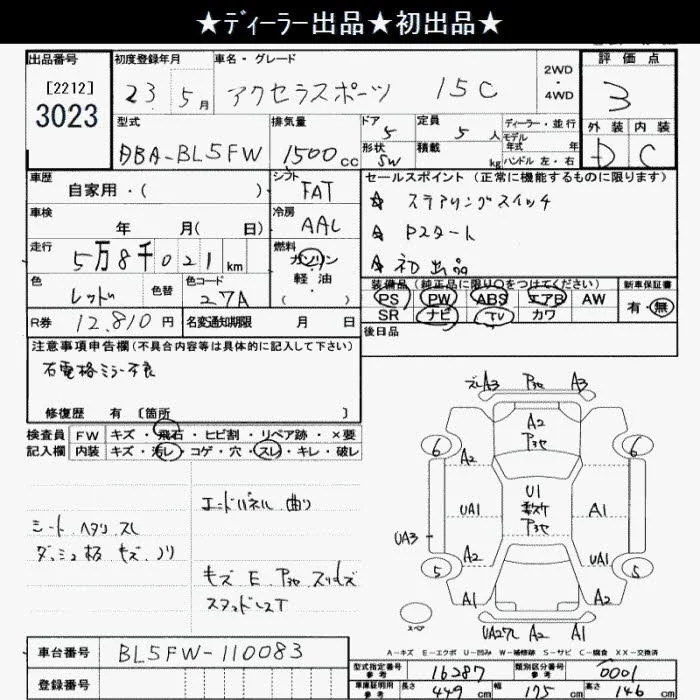 ★ディーラー出品★初出品★
出品番号 初度登録年月 車名・グレード 評価点
[2212]
3023
23 5月 アクセラスポーツ 15C 2WD・4WD 3
型式 排気量 ドア 定員 ディーラー・並行 外装 内装
DBA-BL5FW 1500cc 5 5人 モデル年式 年 D C
形状 SW 積載 kg ハンドル 左・右
車歴 シフト セールスポイント (正常に機能するものに限ります)
自家用・( ) FAT ☆ ステアリングスイッチ
車検 冷房
年 月( 日) AAC ☆ Pスタート
走行 燃料
5万8千021km ガソリン ☆ 初出品
軽油
色 色替 色コード 装備品(純正品に限り○をつけてください) 新車保証書
レッド 27A PS PW ABS エアB AW 有・無
R券 12,810円 名変通知期限 月 日 SR ナビ TV カワ
注意事項申告欄(不具合内容等は具体的に記入して下さい) 後日品
右電格ミラー不良
修復歴 有 [箇所 ]
検査員 FW キズ・飛石・ヒビ割・リペア跡・×要
記入欄 内装 キズ・汚レ・コゲ・穴・スレ・キレ・破レ
エンドパネル 曲り
シート ヘタリ スレ
ダッシュ キズ ノリ
キズ E
ズレA3 A3
A2
6 6
A2
UA1 U1 A1
UA3
A2 UA1
5 5
A1 A1
スペア
A2 A1
A-キズ E-エクボ U-凹み W-補修跡 S-サビ C-腐食 XX-交換済
車台番号 BL5FW-110083
型式指定番号 参考 16287 類別区分番号 参考 0001
登録番号 車庫証明用 参考 長さ 449cm 幅 175cm 高さ 146cm